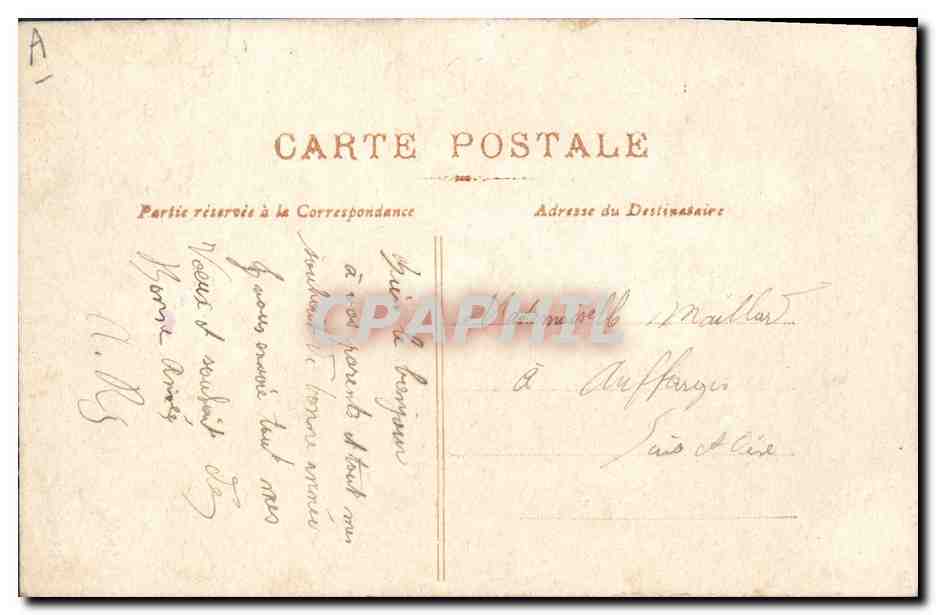 A
CARTE POSTALE
Partie réservée à la Correspondance
Adresse du Destinataire
le bonjour
à vos parents et tout mes
souhait de bonne année
Je vous envoie tout mes
Voeux et souhait de
Bonne Année
CPAPHIL
Mademoiselle Maillard
à Auffargis
Seine et Oise